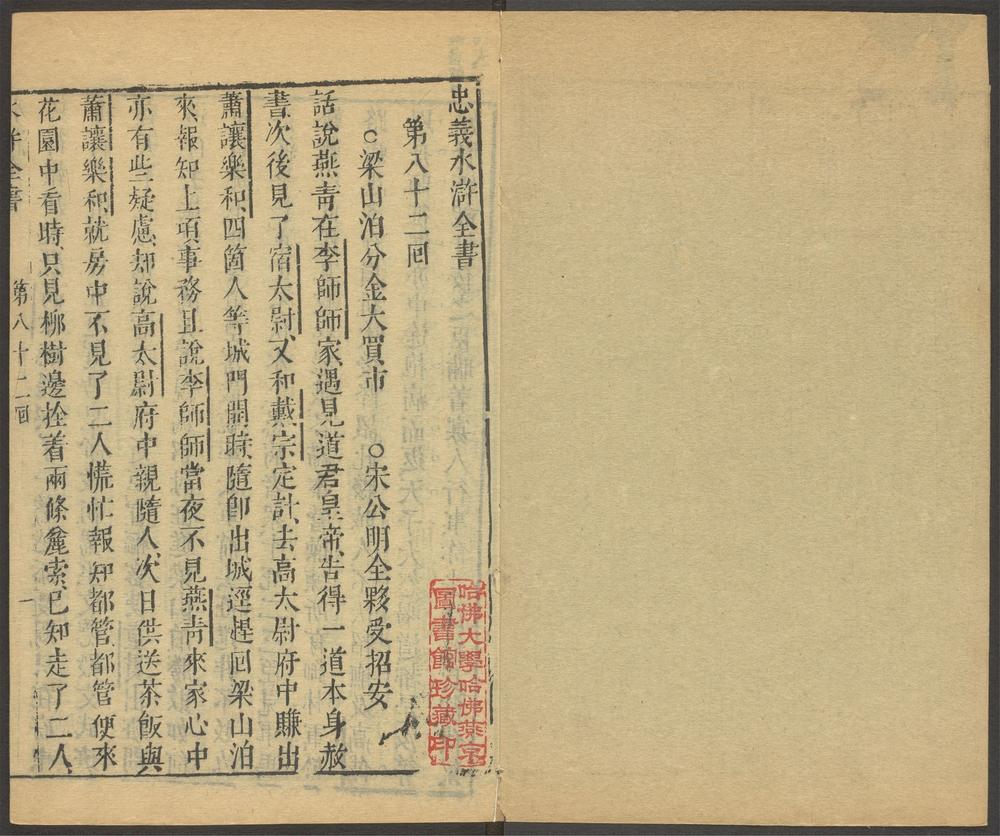 忠義水滸全書
第八十二回
○梁山泊分金大買市 ○宋公明全夥受招安
話說燕青在李師師家遇見道君皇帝告得一道本身赦
書次後見了宿太尉又和戴宗定計去高太尉府中賺出
蕭讓樂和四箇人等城門開時隨卽出城逕趕回梁山泊
來報知上項事務且說李師師當夜不見燕青來家心中
亦有些疑慮却說高太尉府中親隨人次日供送茶飯與
蕭讓樂和就房中不見了二人慌忙報知都管都管便來
花園中看時只見柳樹邊拴着兩條麄索已知走了二人
水滸全書 第八十二回 一
哈佛大學哈佛燕京
圖書館珍藏印